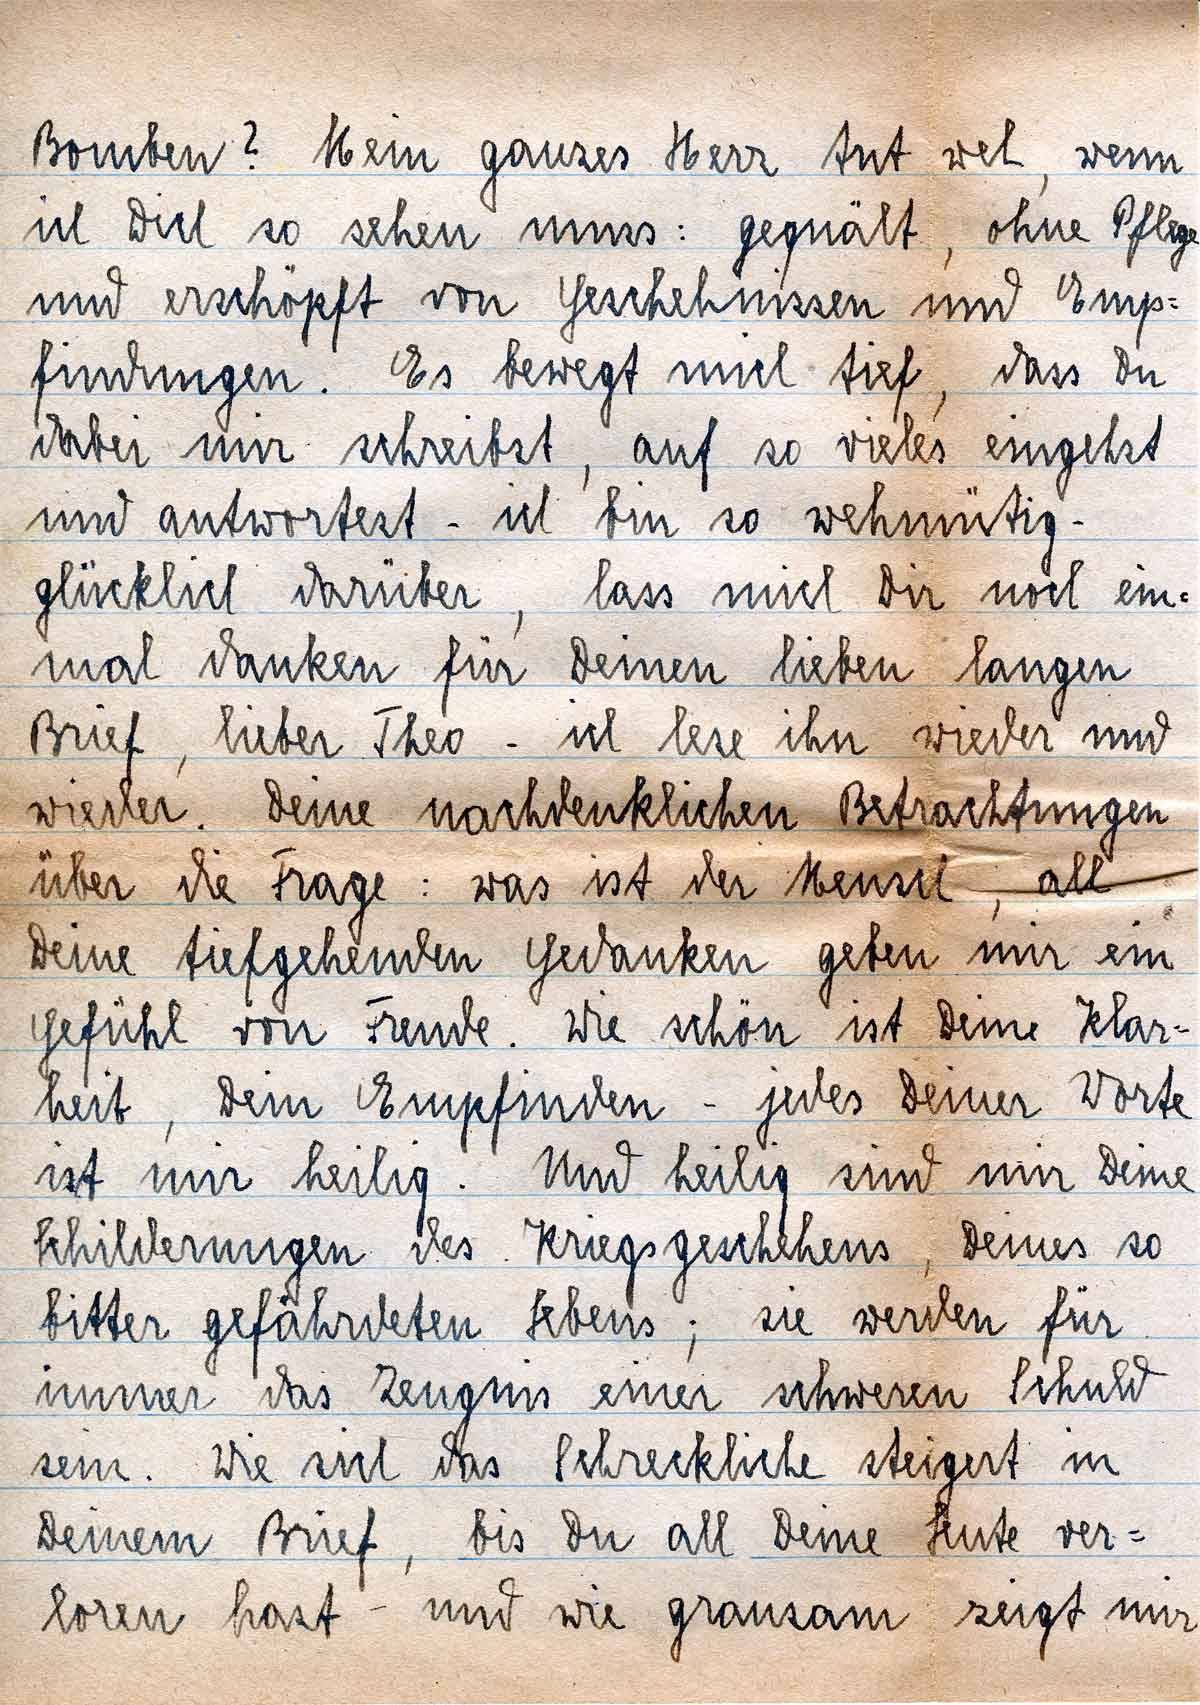 Bomben? Mein ganzes Herz tut weh, wenn
ich Dich so sehen muss: gequält, ohne Pflege
und erschöpft von Geschehnissen und Emp=
findungen. Es bewegt mich tief, dass Du
dabei mir schreibst, auf so vieles eingehst
und antwortest - ich bin so wehmütig-
glücklich darüber, lass mich Dir noch ein=
mal danken für Deinen lieben langen
Brief, lieber Theo - ich lese ihn wieder und
wieder. Deine nachdenklichen Betrachtungen
über die Frage: was ist der Mensch, all
Deine tiefgehenden Gedanken geben mir ein
Gefühl von Freude. Wie schön ist Deine Klar=
heit, Dein Empfinden - jedes Deiner Worte
ist mir heilig. Und heilig sind mir Deine
Schilderungen des Kriegsgeschehens, Deines so
bitter gefährdeten Lebens; sie werden für
immer das Zeugnis einer schweren Schuld
sein. Wie sich das Schreckliche steigert in
Deinem Brief, bis Du all Deine Leute ver=
loren hast - und wie grausam zeigt mir